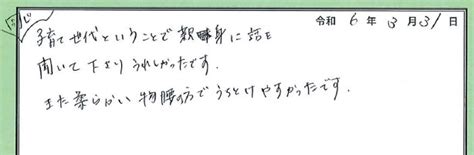 令和 6 年 3 月 31 日
子育て世代ということで親身に話を
聞いて下さりうれしかったです。
また柔らかい物腰の方でうちとけやすかったです。